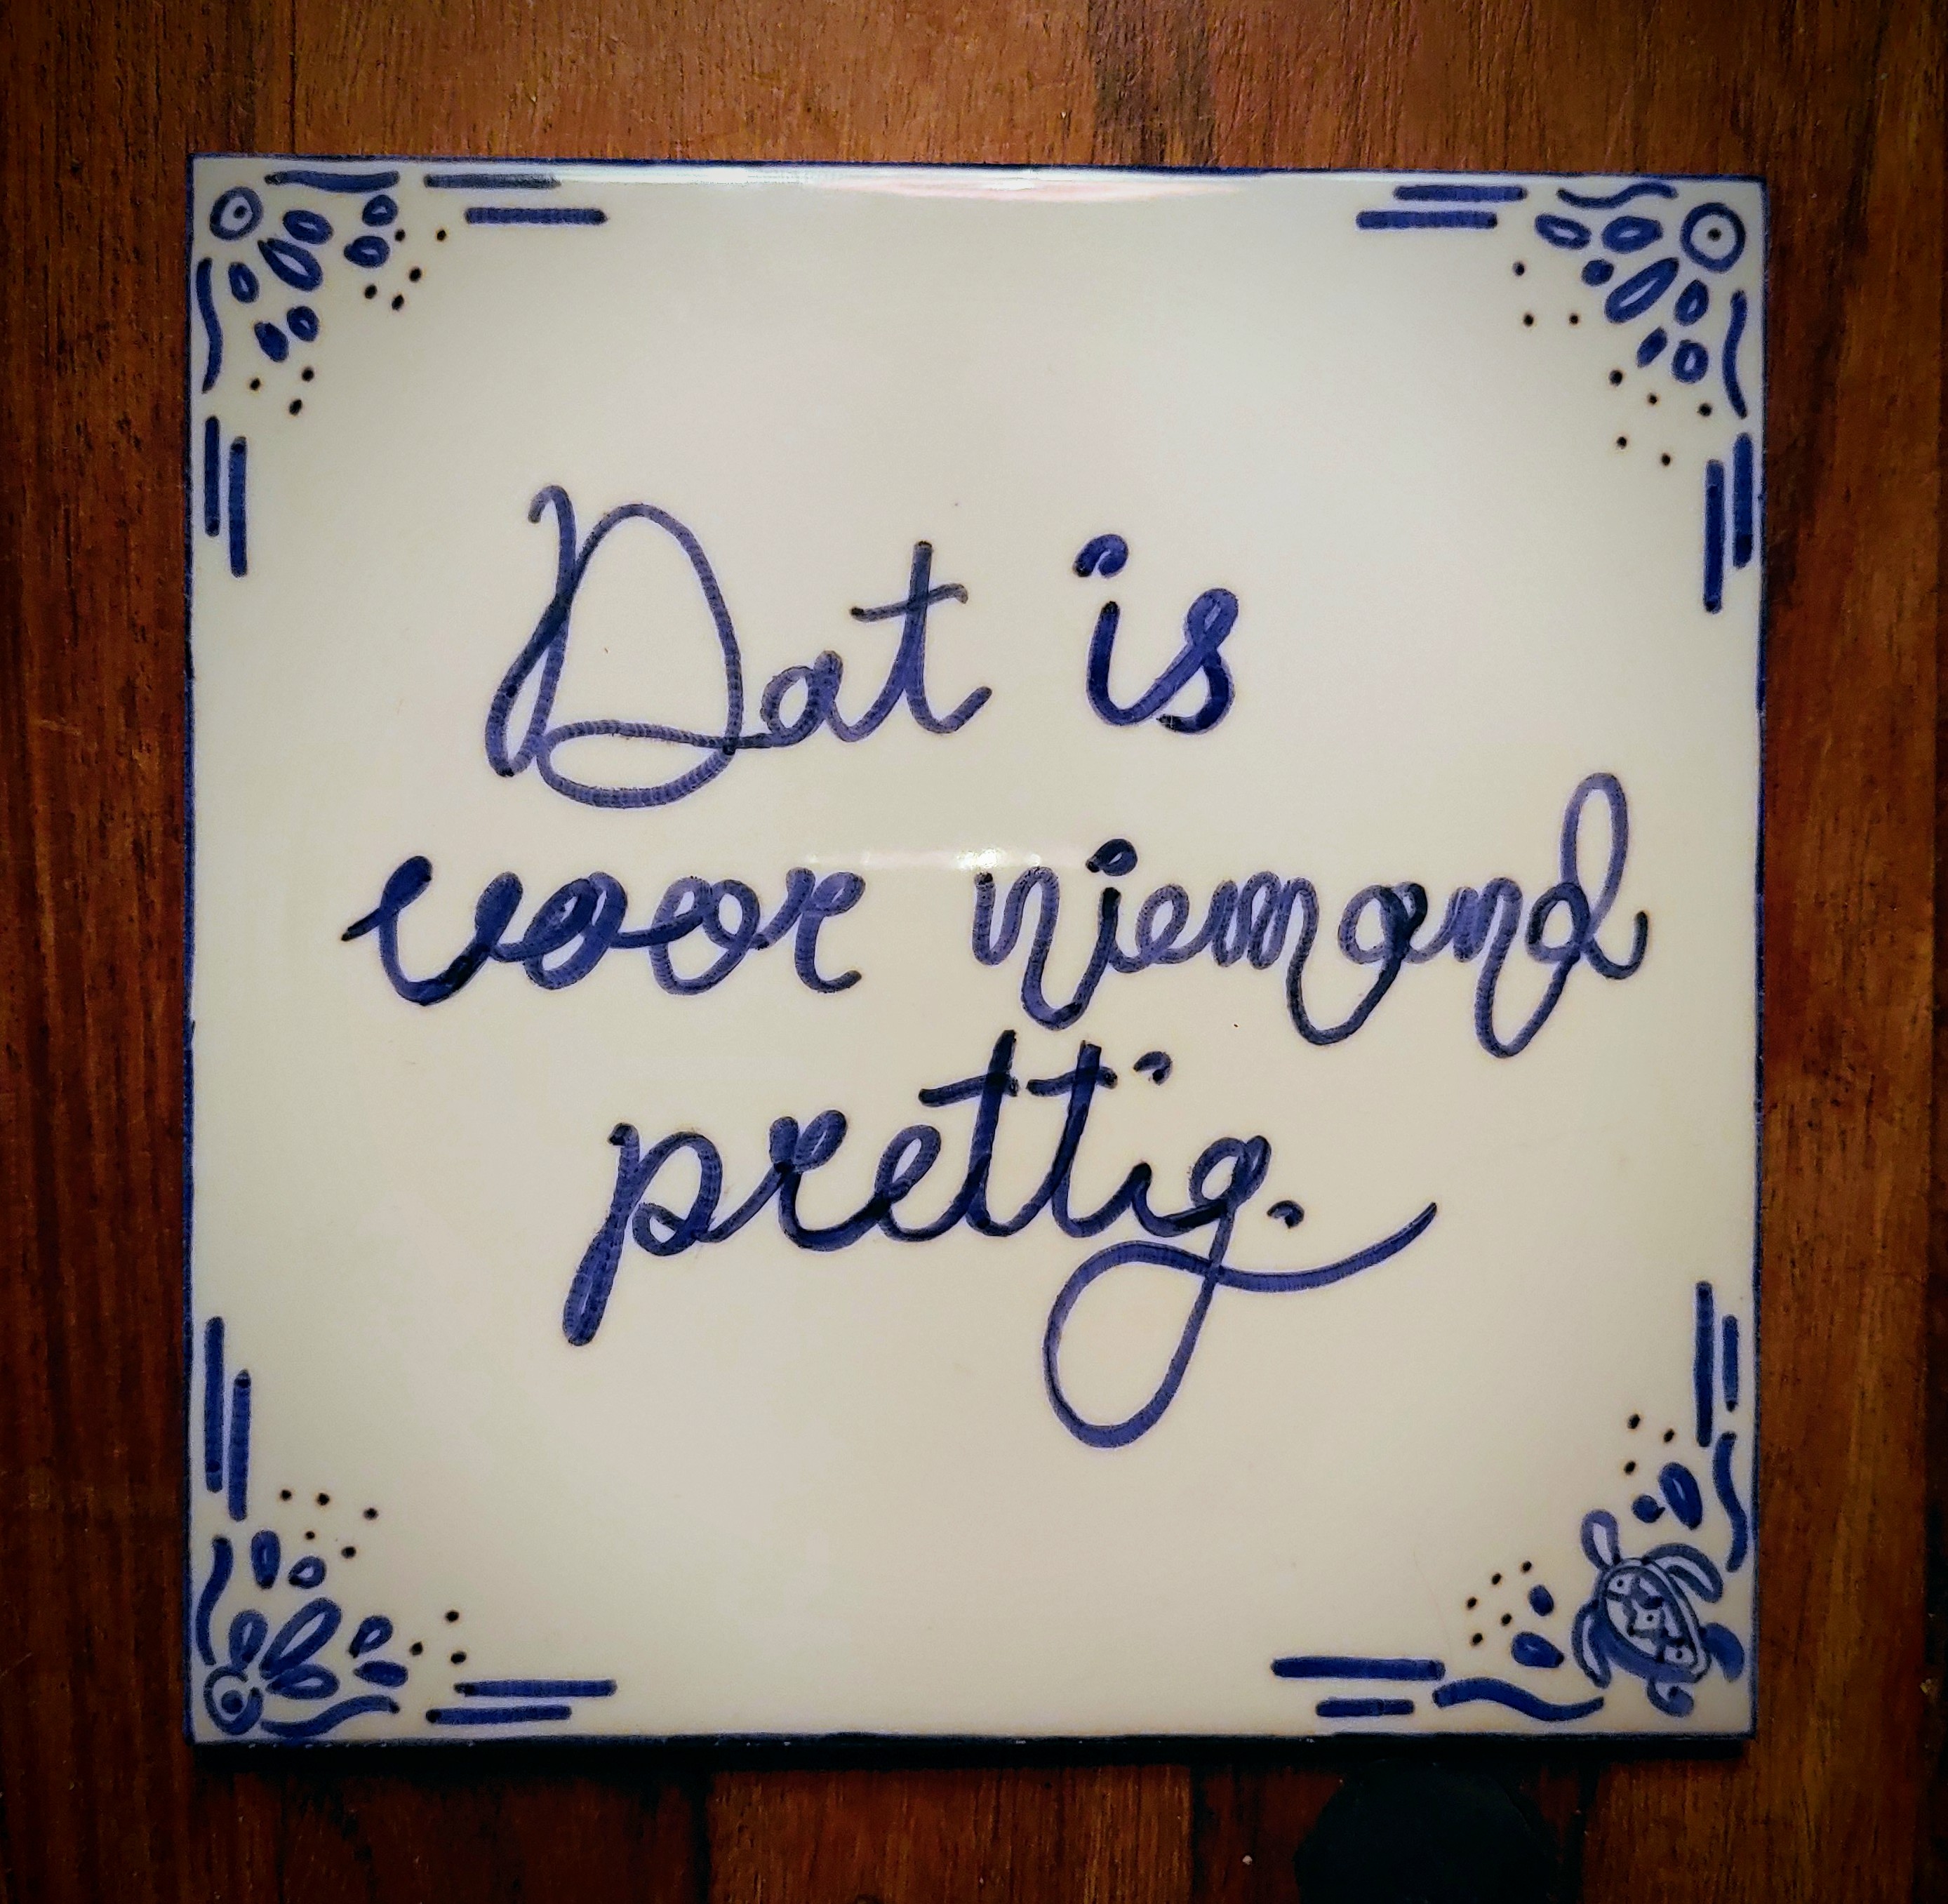 Dat is
voor niemand
prettig.